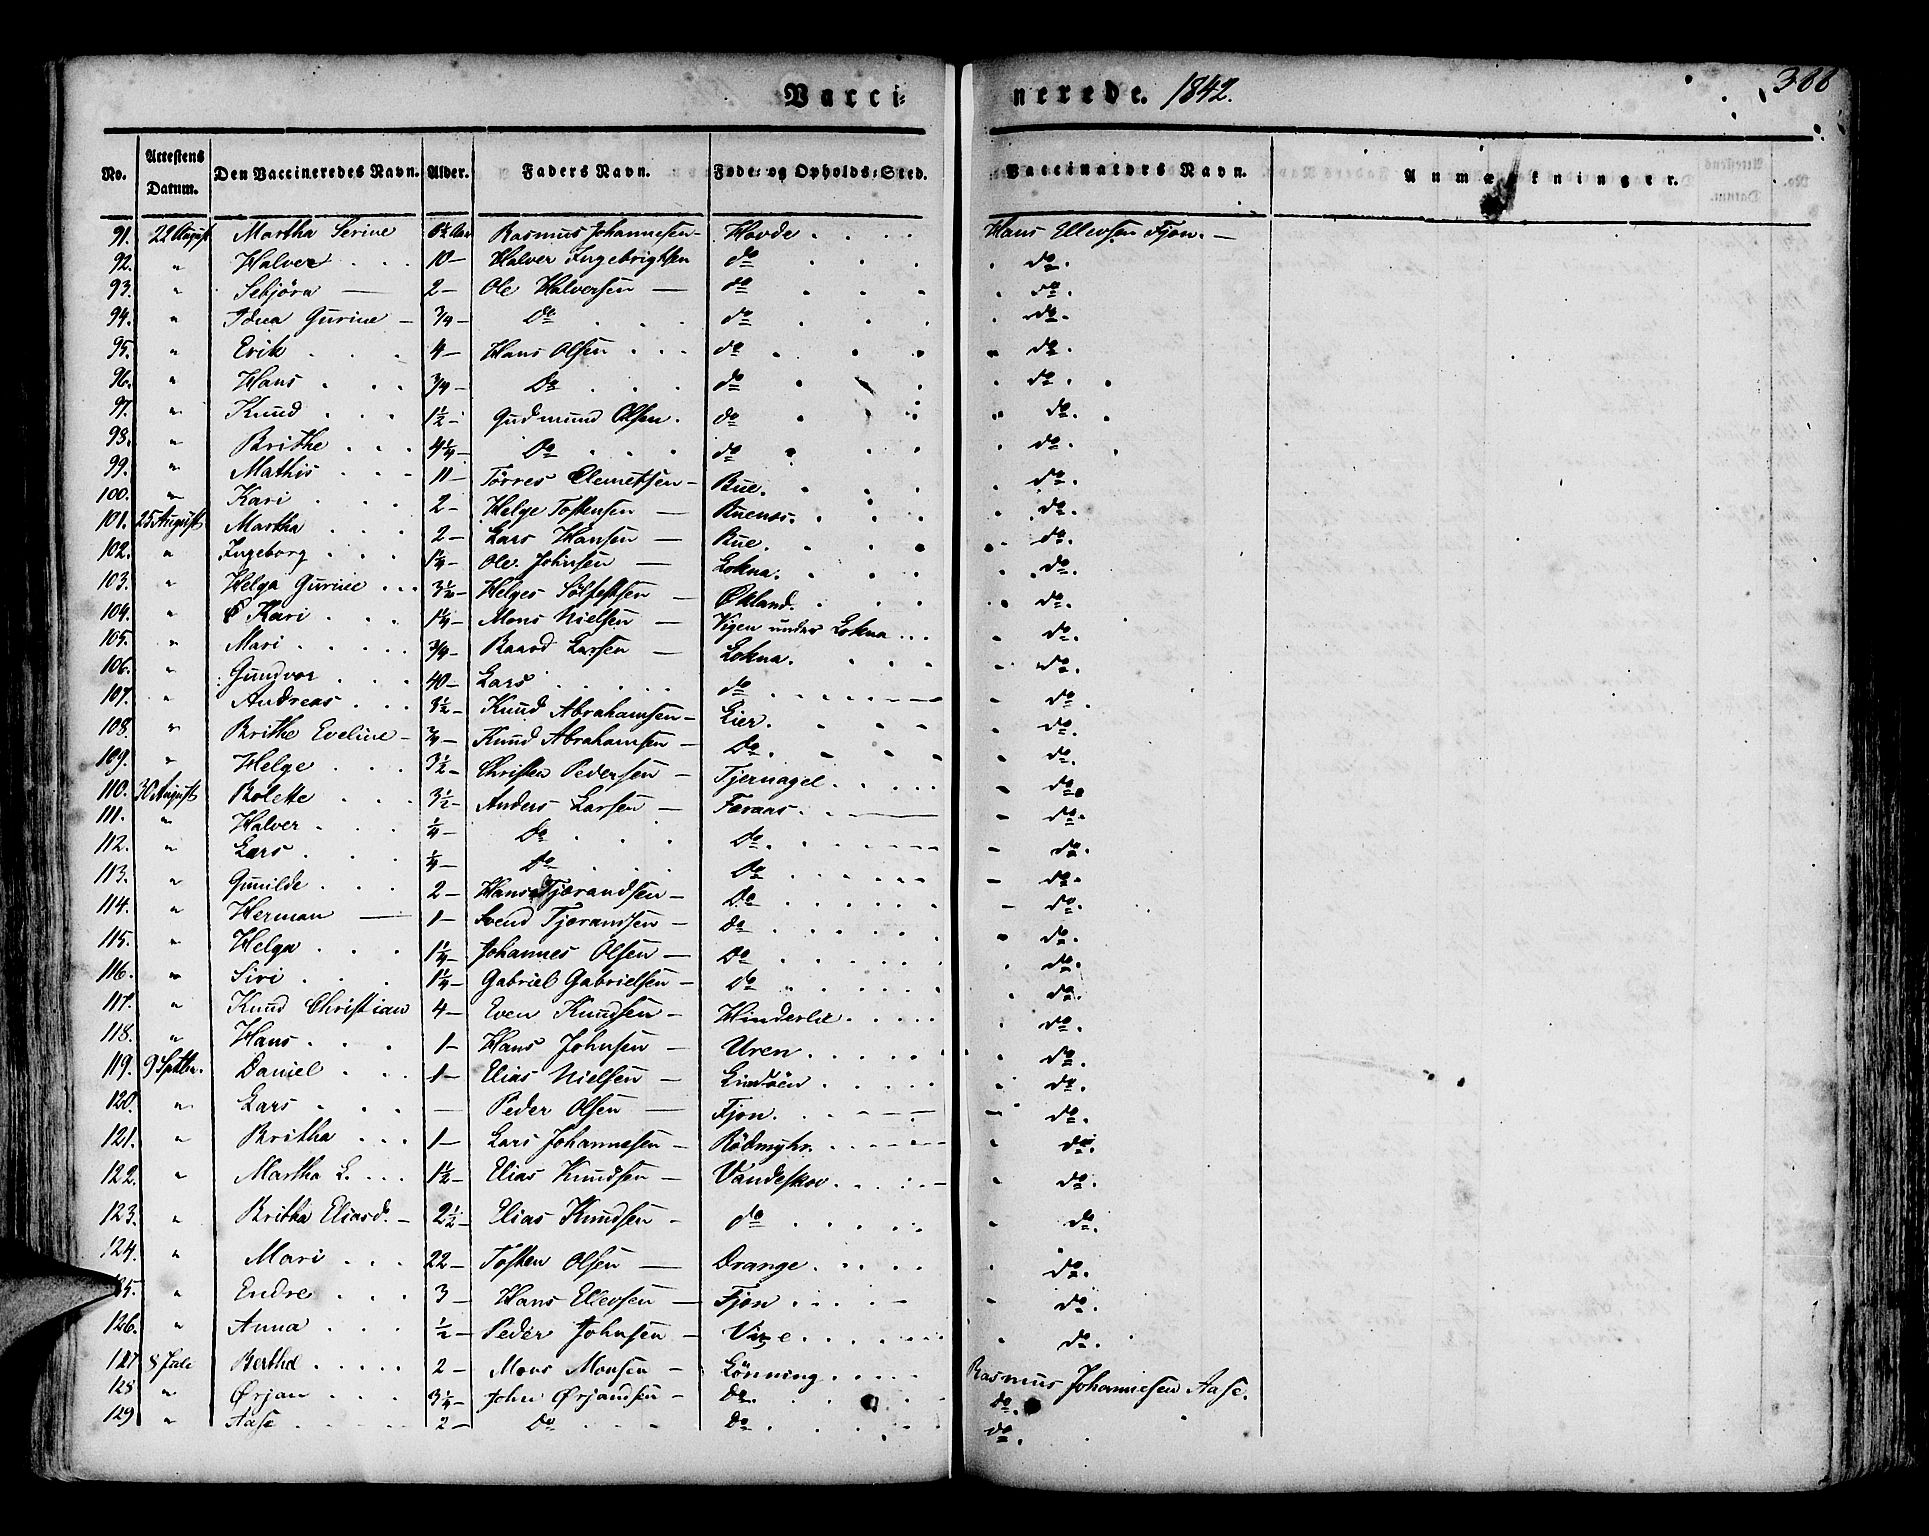 Vacci- nerede. 1842.
No. Attestens Datum. Den Vaccineredes Navn. Alder. Faders Navn. Føde- og Opholds-Sted. Vaccinateurs Navn. Anmærkninger.
91. 22 August Martha Serine Rasmus Johannesen Hovde Hans Ellevsen Fjon.
92. " Halver 10 Halver Ingebrigtsen do do.
93. " Sebjöra 2 Ole Halversen do do.
94. " Gurine 3/4 Do do do.
95. " Erik 4 Hans Olsen do do.
96. " Hans 3/4 Do do do.
97. " Knud 1½ Gudmund Olsen. do do.
98. " Brithe 4¼ Do do do.
99. " Mathis 11 Törres Clemetsen Bue. do.
100. " Kari 2 Helge Tostensen Buenes. do.
101. 25 August Martha 2 Lars Hansen Bue. do.
102. " Ingeborg 1¼ Ole Johnsen Lokna. do.
103. " Helga Gurine 3½ Helges Sölfestsen Økland. do.
104. " Kari 1¼ Mons Nielsen Vigen under Lokna do.
105. " Mari 3/4 Baard Larsen Lokna. do.
106. " Gundvor 40 Lars do do.
107. " Andreas 3½ Knud Abrahamsen Lier. do.
108. " Brithe Eveline 3/4 Knud Abrahamsen Do. do.
109. " Helge 3½ Christen Pedersen Tjernagel do.
110. 30 August Bolette 3½ Anders Larsen Færaas do.
111. " Halver ¼ Do do. do.
112. " Lars ¼ Do Do do.
113. " Gunilde 2 Hans Tjærandsen Do do.
114. " Herman 1 Svend Tjeransen do do.
115. " Helga 1¼ Johannes Olsen Do do.
116. " Siri 1¼ Gabriel Gabrielsen do " do.
117. " Knud Christian 4 Even Knudsen Hinderlie do.
118. " Hans 1 Hans Johnsen Uren do.
119. 9 Septbr. Daniel 1 Elias Nielsen Lindöen do.
120. " Lars — Peder Olsen Fjon. do.
121. " Britha 1 Lars Johannesen Rödmyhr. do.
122. " Martha L. 1½ Elias Knudsen Vandeskov do.
123. " Britha Eliasd. 2½ Elias Knudsen do do.
124. " Mari 22 Tosten Olsen Drange do.
125. " Endre 3 Hans Ellevsen Fjon do.
126. " Anna ½ Peder Johnsen do.
127 8 Jule Bertha 2 Mons Monsen Lönning Rasmus Johannesen Aase.
128 " Ørjan 3¼ John Ørjansen Do. do.
129 " Aase 2 Do Do do.